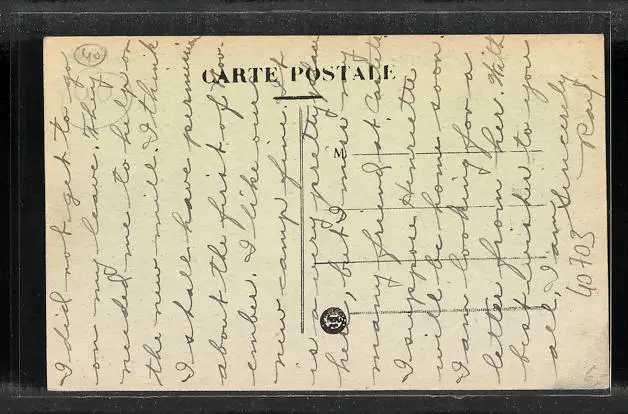 CARTE POSTALE
M
I did not get to go
on my leave. They
needed me to help on
the new mill. I think
I shall have permission
about the first of Nov
ember. I like our
new camp fine. It
is a very pretty place
here, but I miss my
many friends at
I suppose Henriette
will be home soon.
I am looking for a
letter from her. With
best wishes to you
all, I am Sincerely
Ray.
40703
3
6